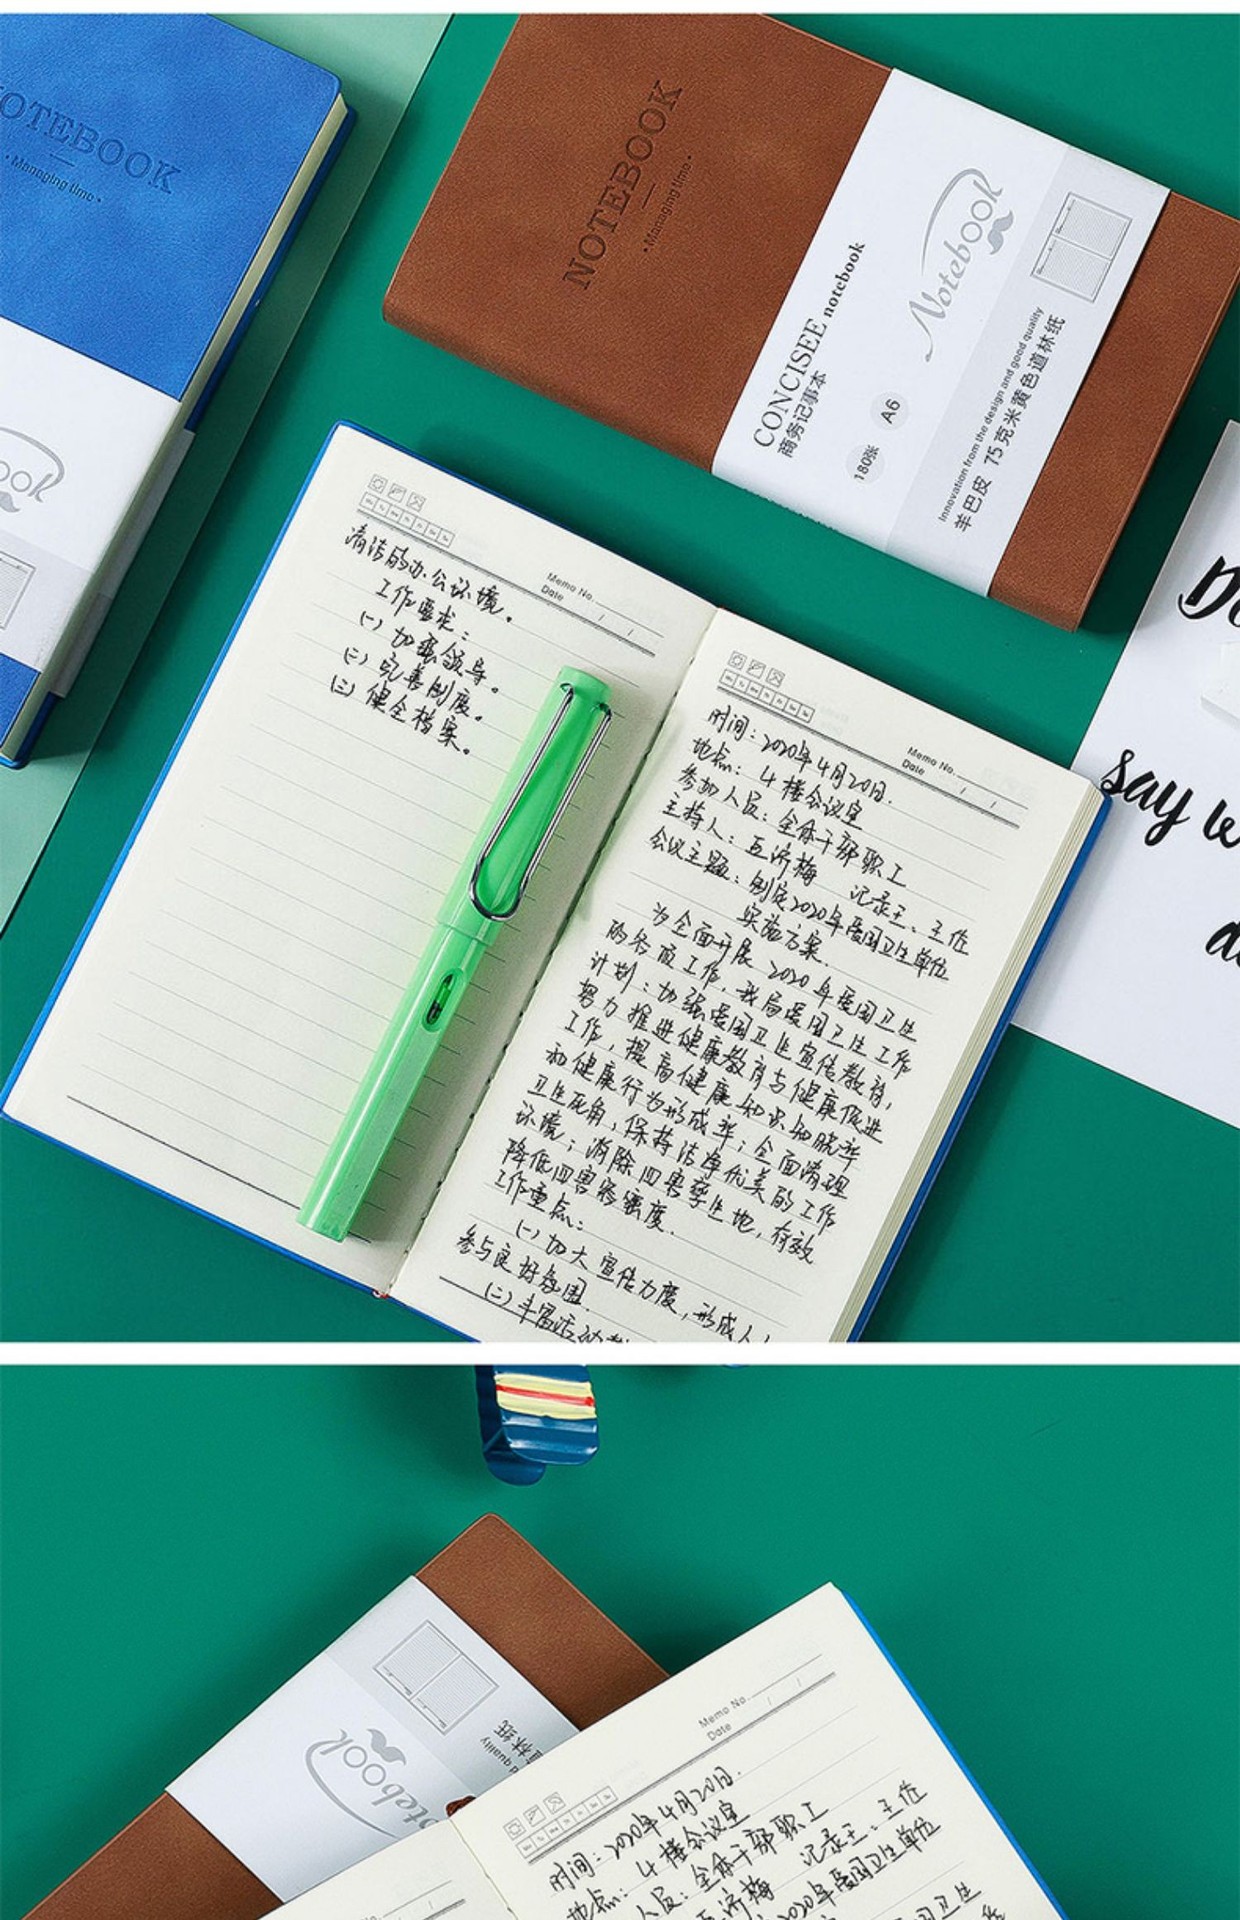 NOTEBOOK
· Managing time ·
NOTEBOOK
· Managing time ·
CONCISEE notebook
商务记事本
180张
A6
Notebook
Innovation from the design and good quality
羊巴皮 75克米黄色道林纸
ook
Memo No.
Date / /
清洁的办公环境。
工作要求：
(一) 加强领导。
(二) 完善制度。
(三) 健全档案。
Memo No.
Date / /
时间：2020年4月20日.
地点：4楼会议室
参加人员：全体干部职工
主持人：王济梅 记录王、主任
会议主题：制定2020年爱国卫生单位
实施方案.
为全面开展2020年爱国卫生
的各项工作，我局爱国卫生工作
计划：加强爱国卫生宣传教育，
努力推进健康教育与健康促进
工作，提高健康知识知晓率
和健康行为形成率；全面清理
卫生死角，保持洁净优美的工作
环境；消除四害孳生地，有效
降低四害密度.
工作重点：
(一) 加大宣传力度，形成人人
参与良好氛围.
(二) 丰富活动
say
Notebook
d quality
道林纸
Memo No.
Date / /
时间：2020年4月20日.
地点：4楼会议室
人员：全体干部职工
王济梅 记录王、主任
2020年爱国卫生单位